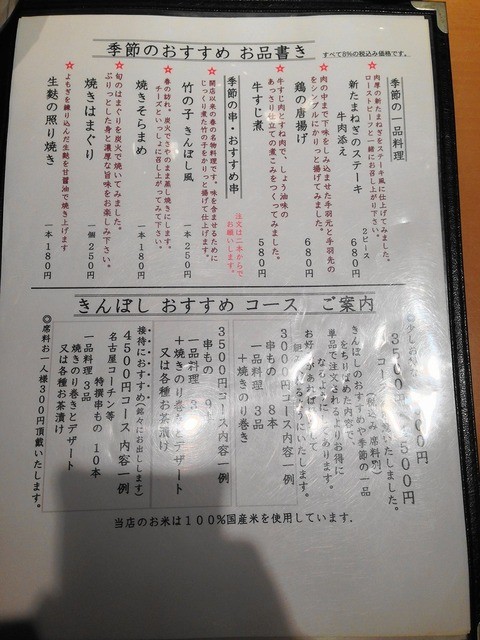 季節のおすすめ お品書き
すべて8%の税込み価格です。
季節の一品料理
新たまねぎのステーキ
牛肉添え
2ピース
680円
☆肉厚の新たまねぎをステーキ風に仕上げてみました。
ローストビーフと一緒にお召し上がり下さい。
鶏の唐揚げ
680円
☆肉の中まで下味をしみ込ませた手羽元と手羽先の
をシンプルにかりっと揚げてみました。
牛すじ煮
580円
☆牛すじ肉とすね肉で、しょう油味の
あっさり仕立ての煮こみをつくってみました。
季節の串・おすすめ串
注文は二本からで
お願いします。
竹の子 きんぼし風
一本 250円
☆開店以来の春の名物料理です。味を含ませるために
じっくり煮た竹の子をかりっと揚げて仕上げます。
焼きそらまめ
一本 180円
☆春の訪れ。炭火でさやのまま蒸し焼きにします。
チーズといっしょに召し上がってみて下さい。
焼きはまぐり
一個 250円
☆旬のはまぐりを炭火で焼いてみました。
ぷりっとした身と濃厚な旨味をお楽しみ下さい。
生麩の照り焼き
一本 180円
☆よもぎを練り込んだ生麩を甘醤油で焼き上げます
きんぼし おすすめ コース ご案内
3000円コース内容一例
串もの 8本
一品料理 3品
+焼のり巻き
3500円コース内容一例
串もの 9本
一品料理 3品
+焼のり巻とデザート
又は各種お茶漬け
接待におすすめ(銘々にお出しします)
4500円コース内容一例
名古屋コーチン等
特撰串もの 10本
一品料理 3品
焼きのり巻きとデザート
又は各種お茶漬け
◎席料お一人様300円頂戴いたします。
当店のお米は100%国産米を使用しています.